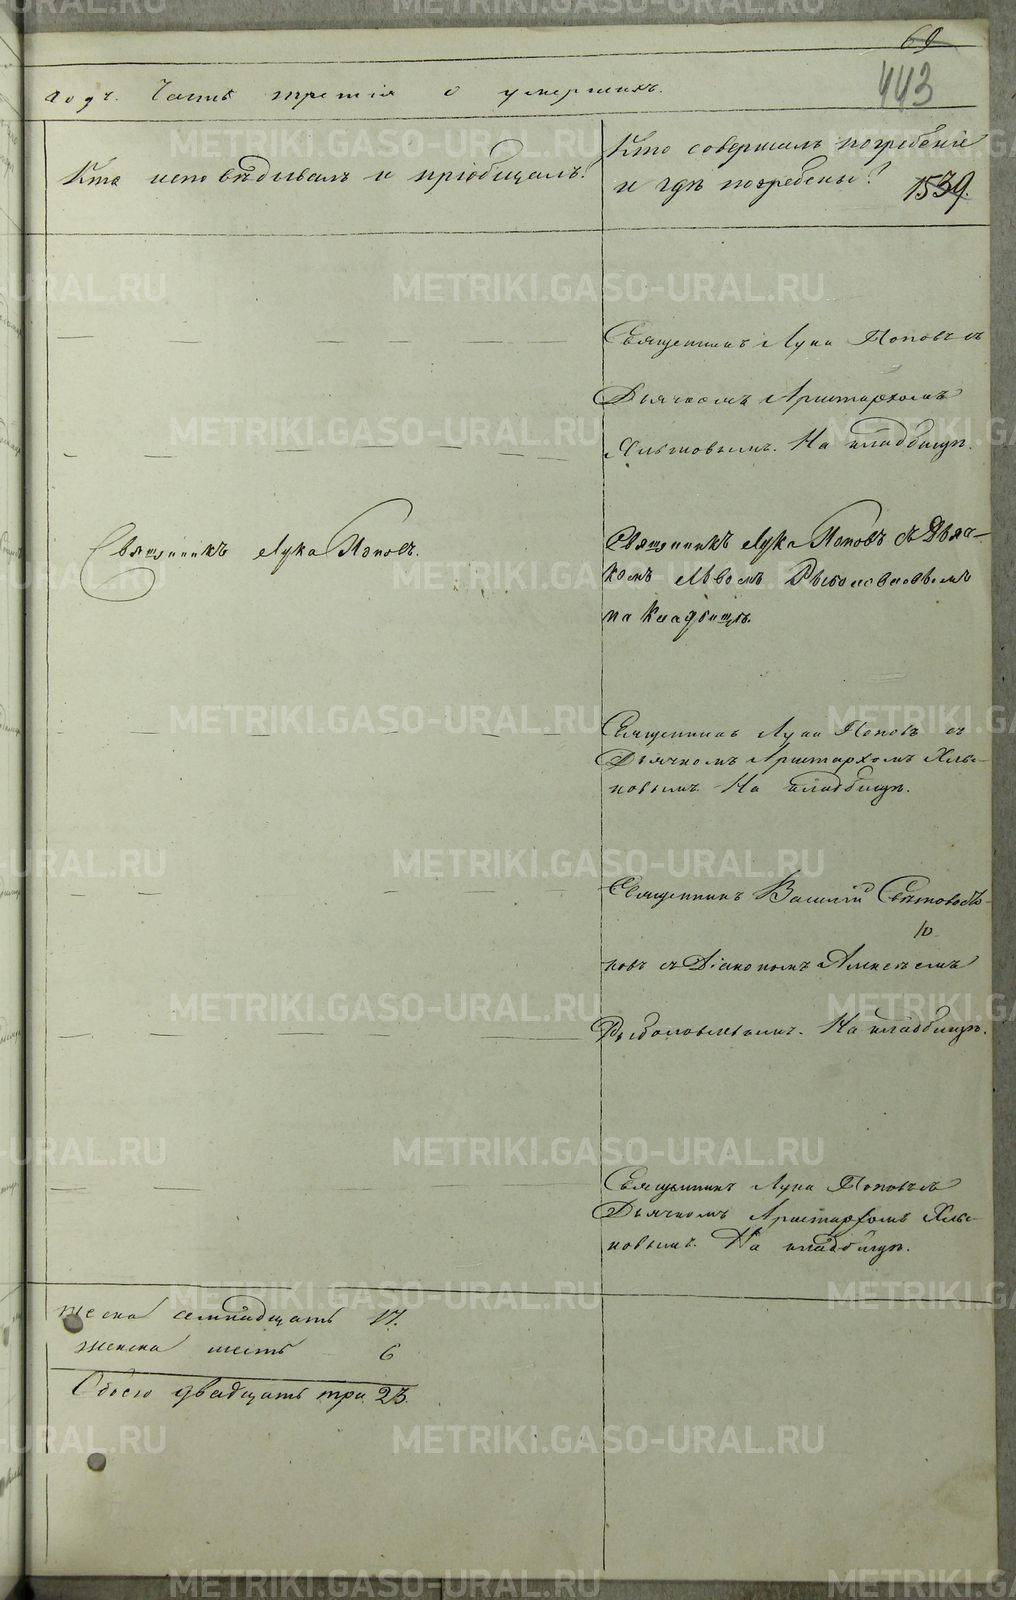 69
443
годъ. Часть третія о умершихъ.
Кто исповѣдывалъ и пріобщалъ.
Кто совершалъ погребеніе
и гдѣ погребены?
1539.
Священникъ Лука Поповъ съ
Дьячкомъ Аристархомъ
На кладбищѣ.
Священникъ Лука Поповъ.
Священникъ Лука Поповъ съ Дьяч-
комъ Львомъ
на кладбищѣ.
Священникъ Лука Поповъ съ
Дьячкомъ Аристархомъ Хлы-
новымъ. На кладбищѣ.
Священникъ Василій
новъ съ Діакономъ Алексѣемъ
На кладбищѣ.
Священникъ Лука Поповъ съ
Дьячкомъ Аристархомъ Хлы-
новымъ. На кладбищѣ.
жеска семнадцать 17.
женска шесть 6
Обоего двадцать три 23.
METRIKI.GASO-URAL.RU